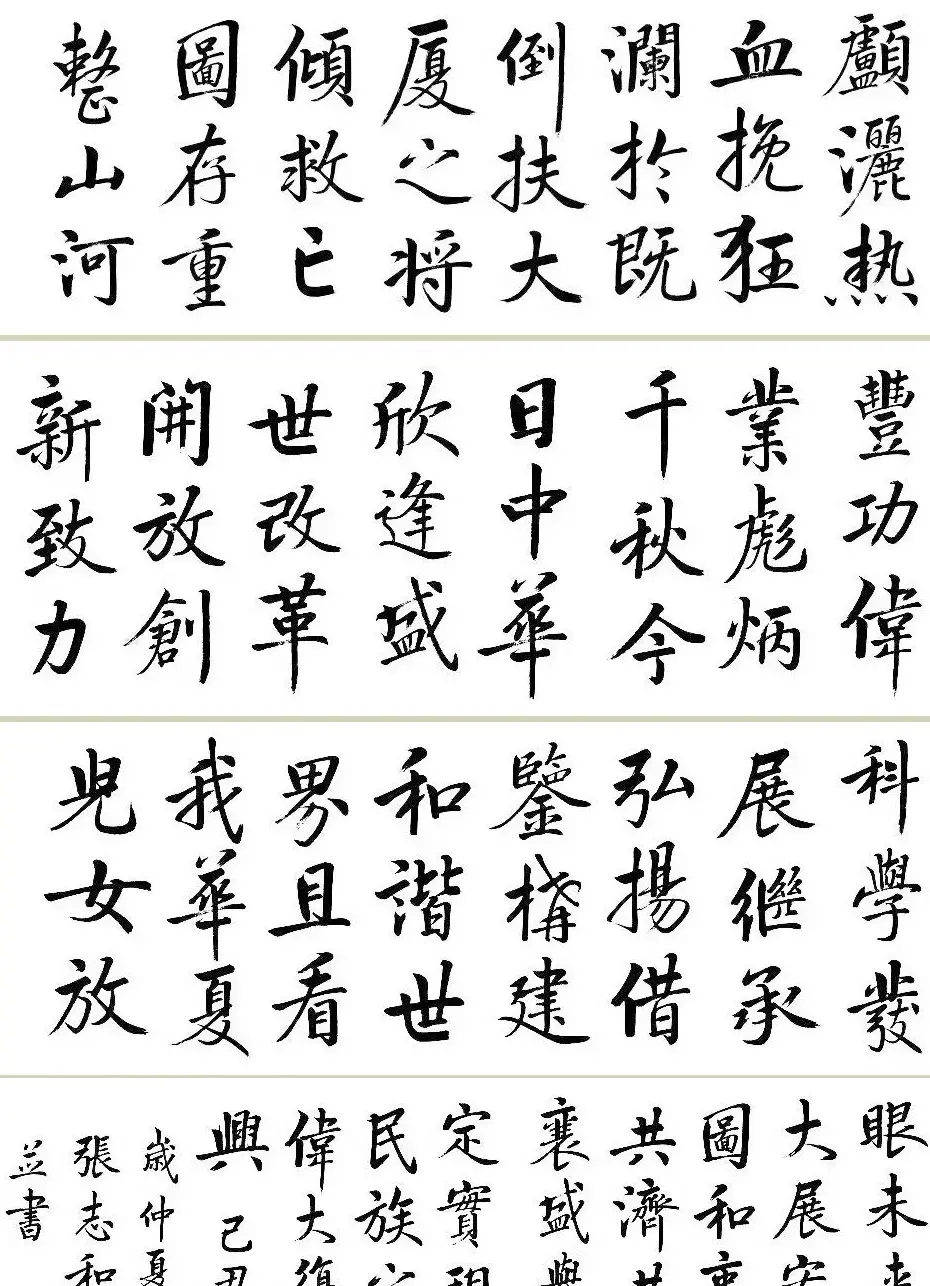 顱灑热
血挽狂
瀾於既
倒扶大
厦之将
傾救亡
圖存重
整山河
豐功偉
業彪炳
千秋今
日中華
欣逢盛
世改革
開放創
新致力
科學發
展繼承
弘揚借
鑒構建
和諧世
界且看
我華夏
兒女放
眼未来
大展宏
圖和衷
共濟共
襄盛舉
定實現
民族
偉大復
興己丑
歲仲夏
張志和
並書